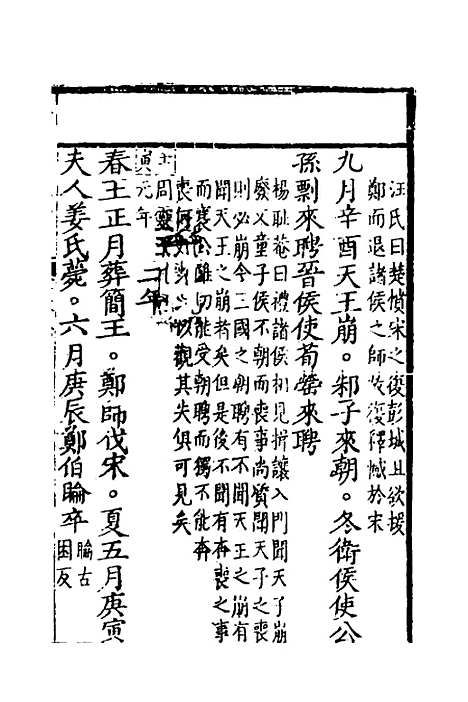 汪氏曰楚憤宋之復彭城且欲援
鄭而退諸侯之師故復釋憾於宋
九月辛酉天王崩。邾子來朝。冬衛侯使公
孫剽來聘晉侯使荀罃來聘
楊耻菴曰禮諸侯相見揖讓入門聞天子崩
廢父童子侯不朝而喪事尚質聞天子之喪
則必崩今三國之朝聘有不聞天王之崩有
聞天王之崩者矣但是後不聞有奔喪之事
而襄公雖幼能受朝聘而獨不能奔
喪何以觀其失俱可見矣
周靈王
寅元年
二年
春王正月葬簡王。鄭師伐宋。夏五月庚寅
夫人姜氏薨。六月庚辰鄭伯睔卒
睔古
困反